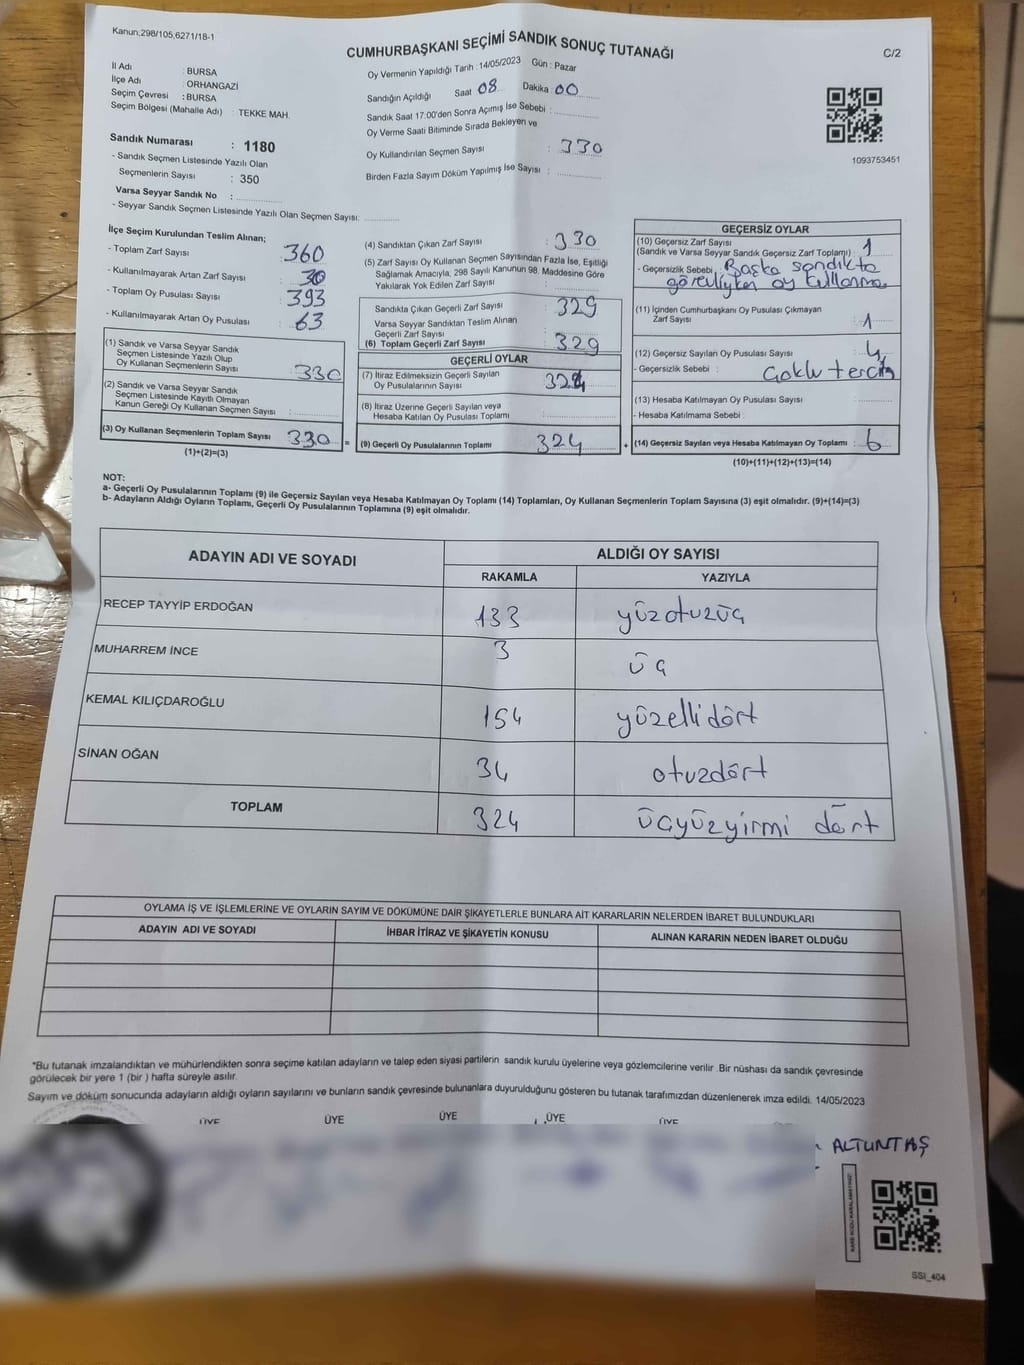 Kanun;298/105,6271/18-1
CUMHURBAŞKANI SEÇİMİ SANDIK SONUÇ TUTANAĞI
C/2
İl Adı : BURSA
İlçe Adı : ORHANGAZİ
Seçim Çevresi : BURSA
Seçim Bölgesi (Mahalle Adı) : TEKKE MAH.
Oy Vermenin Yapıldığı Tarih :14/05/2023 Gün : Pazar
Sandığın Açıldığı Saat 08 Dakika 00
Sandık Saat 17:00'den Sonra Açımış İse Sebebi :
Oy Verme Saati Bitiminde Sırada Bekleyen ve
Oy Kullandırılan Seçmen Sayısı : 330
Birden Fazla Sayım Döküm Yapılmış İse Sayısı :
1093753451
Sandık Numarası : 1180
- Sandık Seçmen Listesinde Yazılı Olan
Seçmenlerin Sayısı : 350
Varsa Seyyar Sandık No :
- Seyyar Sandık Seçmen Listesinde Yazılı Olan Seçmen Sayısı:
İlçe Seçim Kurulundan Teslim Alınan;
- Toplam Zarf Sayısı : 360
- Kullanılmayarak Artan Zarf Sayısı : 30
- Toplam Oy Pusulası Sayısı : 393
- Kullanılmayarak Artan Oy Pusulası : 63
(1) Sandık ve Varsa Seyyar Sandık
Seçmen Listesinde Yazılı Olup
Oy Kullanan Seçmenlerin Sayısı : 330
(2) Sandık ve Varsa Seyyar Sandık
Seçmen Listesinde Kayıtlı Olmayan
Kanun Gereği Oy Kullanan Seçmen Sayısı :
(3) Oy Kullanan Seçmenlerin Toplam Sayısı : 330 =
(1)+(2)=(3)
(4) Sandıktan Çıkan Zarf Sayısı : 330
(5) Zarf Sayısı Oy Kullanan Seçmen Sayısından Fazla İse, Eşitliği
Sağlamak Amacıyla, 298 Sayılı Kanunun 98. Maddesine Göre
Yakılarak Yok Edilen Zarf Sayısı :
Sandıkta Çıkan Geçerli Zarf Sayısı : 329
Varsa Seyyar Sandıktan Teslim Alınan
Geçerli Zarf Sayısı :
(6) Toplam Geçerli Zarf Sayısı : 329
GEÇERLİ OYLAR
(7) İtiraz Edilmeksizin Geçerli Sayılan
Oy Pusulalarının Sayısı : 324
(8) İtiraz Üzerine Geçerli Sayılan veya
Hesaba Katılan Oy Pusulası Toplamı :
(9) Geçerli Oy Pusulalarının Toplamı : 324 +
GEÇERSİZ OYLAR
(10) Geçersiz Zarf Sayısı
(Sandık ve Varsa Seyyar Sandık Geçersiz Zarf Toplamı) : 1
- Geçersizlik Sebebi : Başka sandıkta
görevliyken oy kullanma
(11) İçinden Cumhurbaşkanı Oy Pusulası Çıkmayan
Zarf Sayısı : 1
(12) Geçersiz Sayılan Oy Pusulası Sayısı : 4
- Geçersizlik Sebebi : Çoklu tercih
(13) Hesaba Katılmayan Oy Pusulası Sayısı :
- Hesaba Katılmama Sebebi :
(14) Geçersiz Sayılan veya Hesaba Katılmayan Oy Toplamı : 6
(10)+(11)+(12)+(13)=(14)
NOT:
a- Geçerli Oy Pusulalarının Toplamı (9) ile Geçersiz Sayılan veya Hesaba Katılmayan Oy Toplamı (14) Toplamları, Oy Kullanan Seçmenlerin Toplam Sayısına (3) eşit olmalıdır. (9)+(14)=(3)
b- Adayların Aldığı Oyların Toplamı, Geçerli Oy Pusulalarının Toplamına (9) eşit olmalıdır.
ADAYIN ADI VE SOYADI ALDIĞI OY SAYISI
RAKAMLA YAZIYLA
RECEP TAYYİP ERDOĞAN 133 yüzotuzüç
MUHARREM İNCE 3 üç
KEMAL KILIÇDAROĞLU 154 yüzellidört
SİNAN OĞAN 34 otuzdört
TOPLAM 324 üçyüzyirmi dört
OYLAMA İŞ VE İŞLEMLERİNE VE OYLARIN SAYIM VE DÖKÜMÜNE DAİR ŞİKAYETLERLE BUNLARA AİT KARARLARIN NELERDEN İBARET BULUNDUKLARI
ADAYIN ADI VE SOYADI İHBAR İTİRAZ VE ŞİKAYETİN KONUSU ALINAN KARARIN NEDEN İBARET OLDUĞU
*Bu tutanak imzalandıktan ve mühürlendikten sonra seçime katılan adayların ve talep eden siyasi partilerin sandık kurulu üyelerine veya gözlemcilerine verilir .Bir nüshası da sandık çevresinde
görülecek bir yere 1 (bir ) hafta süreyle asılır.
Sayım ve döküm sonucunda adayların aldığı oyların sayılarını ve bunların sandık çevresinde bulunanlara duyurulduğunu gösteren bu tutanak tarafımızdan düzenlenerek imza edildi. 14/05/2023
ÜYE ÜYE ÜYE ÜYE ÜYE
ALTUNTAŞ
KARE KODU KARALAMAYINIZ
SSI_404